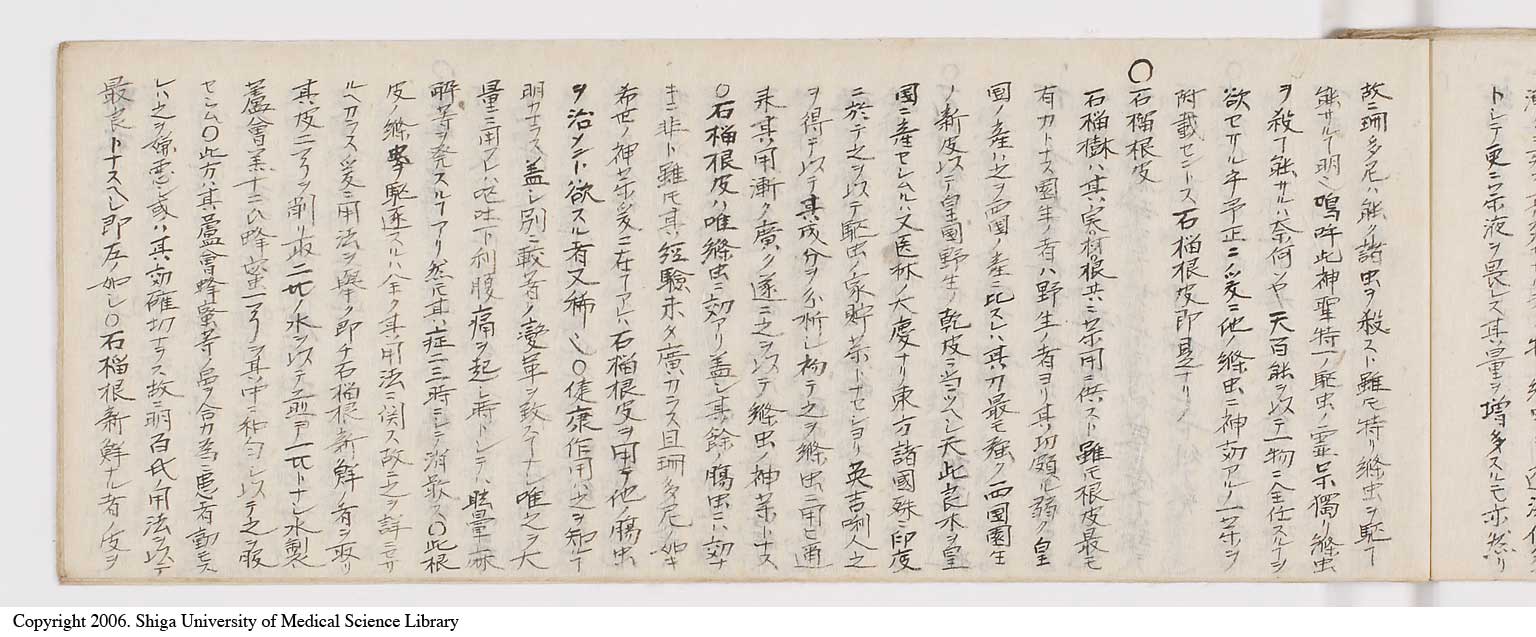 トシテ更ニ栄液ヲ畏レス其量ヲ増多スルモ亦然リ
故ニ珊多尼ハ能ク諸虫ヲ殺スト雖モ特リ絛虫ヲ駆テ
能サルヿ明シ嗚呼此神聖特一ノ駆虫ノ霊品獨リ絛虫
ヲ殺ヿ能サルハ奈何ソヤ天百能ヲ以テ一物ニ全任スルヿヲ
欲セサル乎予正ニ爰ニ他ノ絛虫ニ神効アルノ一茶ヲ
附載セントス石榴根皮即是ナリ
〇石榴根皮
石榴樹ハ其実材根共ニ茶用ニ供スト雖モ根皮最モ
有力トナス園生ノ者ハ野生ノ者ヨリ其功頗ル弱ク皇
國ノ産ハ之ヲ西國ノ産ニ比スレハ其力最モ強ク西國園生
ノ新皮以テ皇國野生ノ乾皮ニ当ツヘシ天此良木ヲ皇
國ニ産セシムルハ又医林ノ大慶ナリ東方諸國殊ニ印度
ニ於テ之ヲ以テ駆虫ノ家貯茶トナセシヨリ英吉唎人之
ヲ得テ以テ其成分ヲ分析シ初テ之ヲ絛虫ニ用ヒ
来其用漸ク廣ク遂ニ之ヲ以テ絛虫ノ神茶トナス
〇石榴根皮ハ唯絛虫ニ効アリ蓋シ其餘ノ腸虫ニハ効ナ
キニ非ト雖モ其経験未タ廣カラス且珊多尼ノ如キ
希世ノ神茶爰ニ在ヿアレハ石榴根皮ヲ用テ他ノ腸虫
ヲ治セント欲スル者又稀也〇健康作用ハ之ヲ知ルヿ
明カナラス蓋シ別ニ較著ノ變革ヲ致スヿナシ唯之ヲ大
量ニ用フレハ嘔吐下利腹痛ヲ起シ時トシテハ眩暈麻
痺等ヲ発スルヿアリ然モ其症二三時ニシテ消散ス〇此根
皮ノ絛虫ヲ駆逐スルハ全ク其用法ニ関ス故之ヲ詳ニセサ
ルヘカラス爰ニ用法ヲ挙ク即チ石榴根新鮮ノ者ヲ取リ
其皮二ヲ削リ取二ノ水ヲ以テ之ヲ煎ヿ一トナシ水製
蘆會羔十二蜂蜜一ヲ其中ニ和匀シ以テ之ヲ服
セシム〇此方ハ其蘆會蜂蜜等ヲ含カ為ニ患者動モス
レハ之ヲ嫌悪シ或ハ其効確切ナラス故ニ明百氏ノ用法ヲ以テ
最良トナスヘシ即左ノ如シ〇石榴根新鮮ナル者ノ皮ヲ
Copyright 2006. Shiga University of Medical Science Library